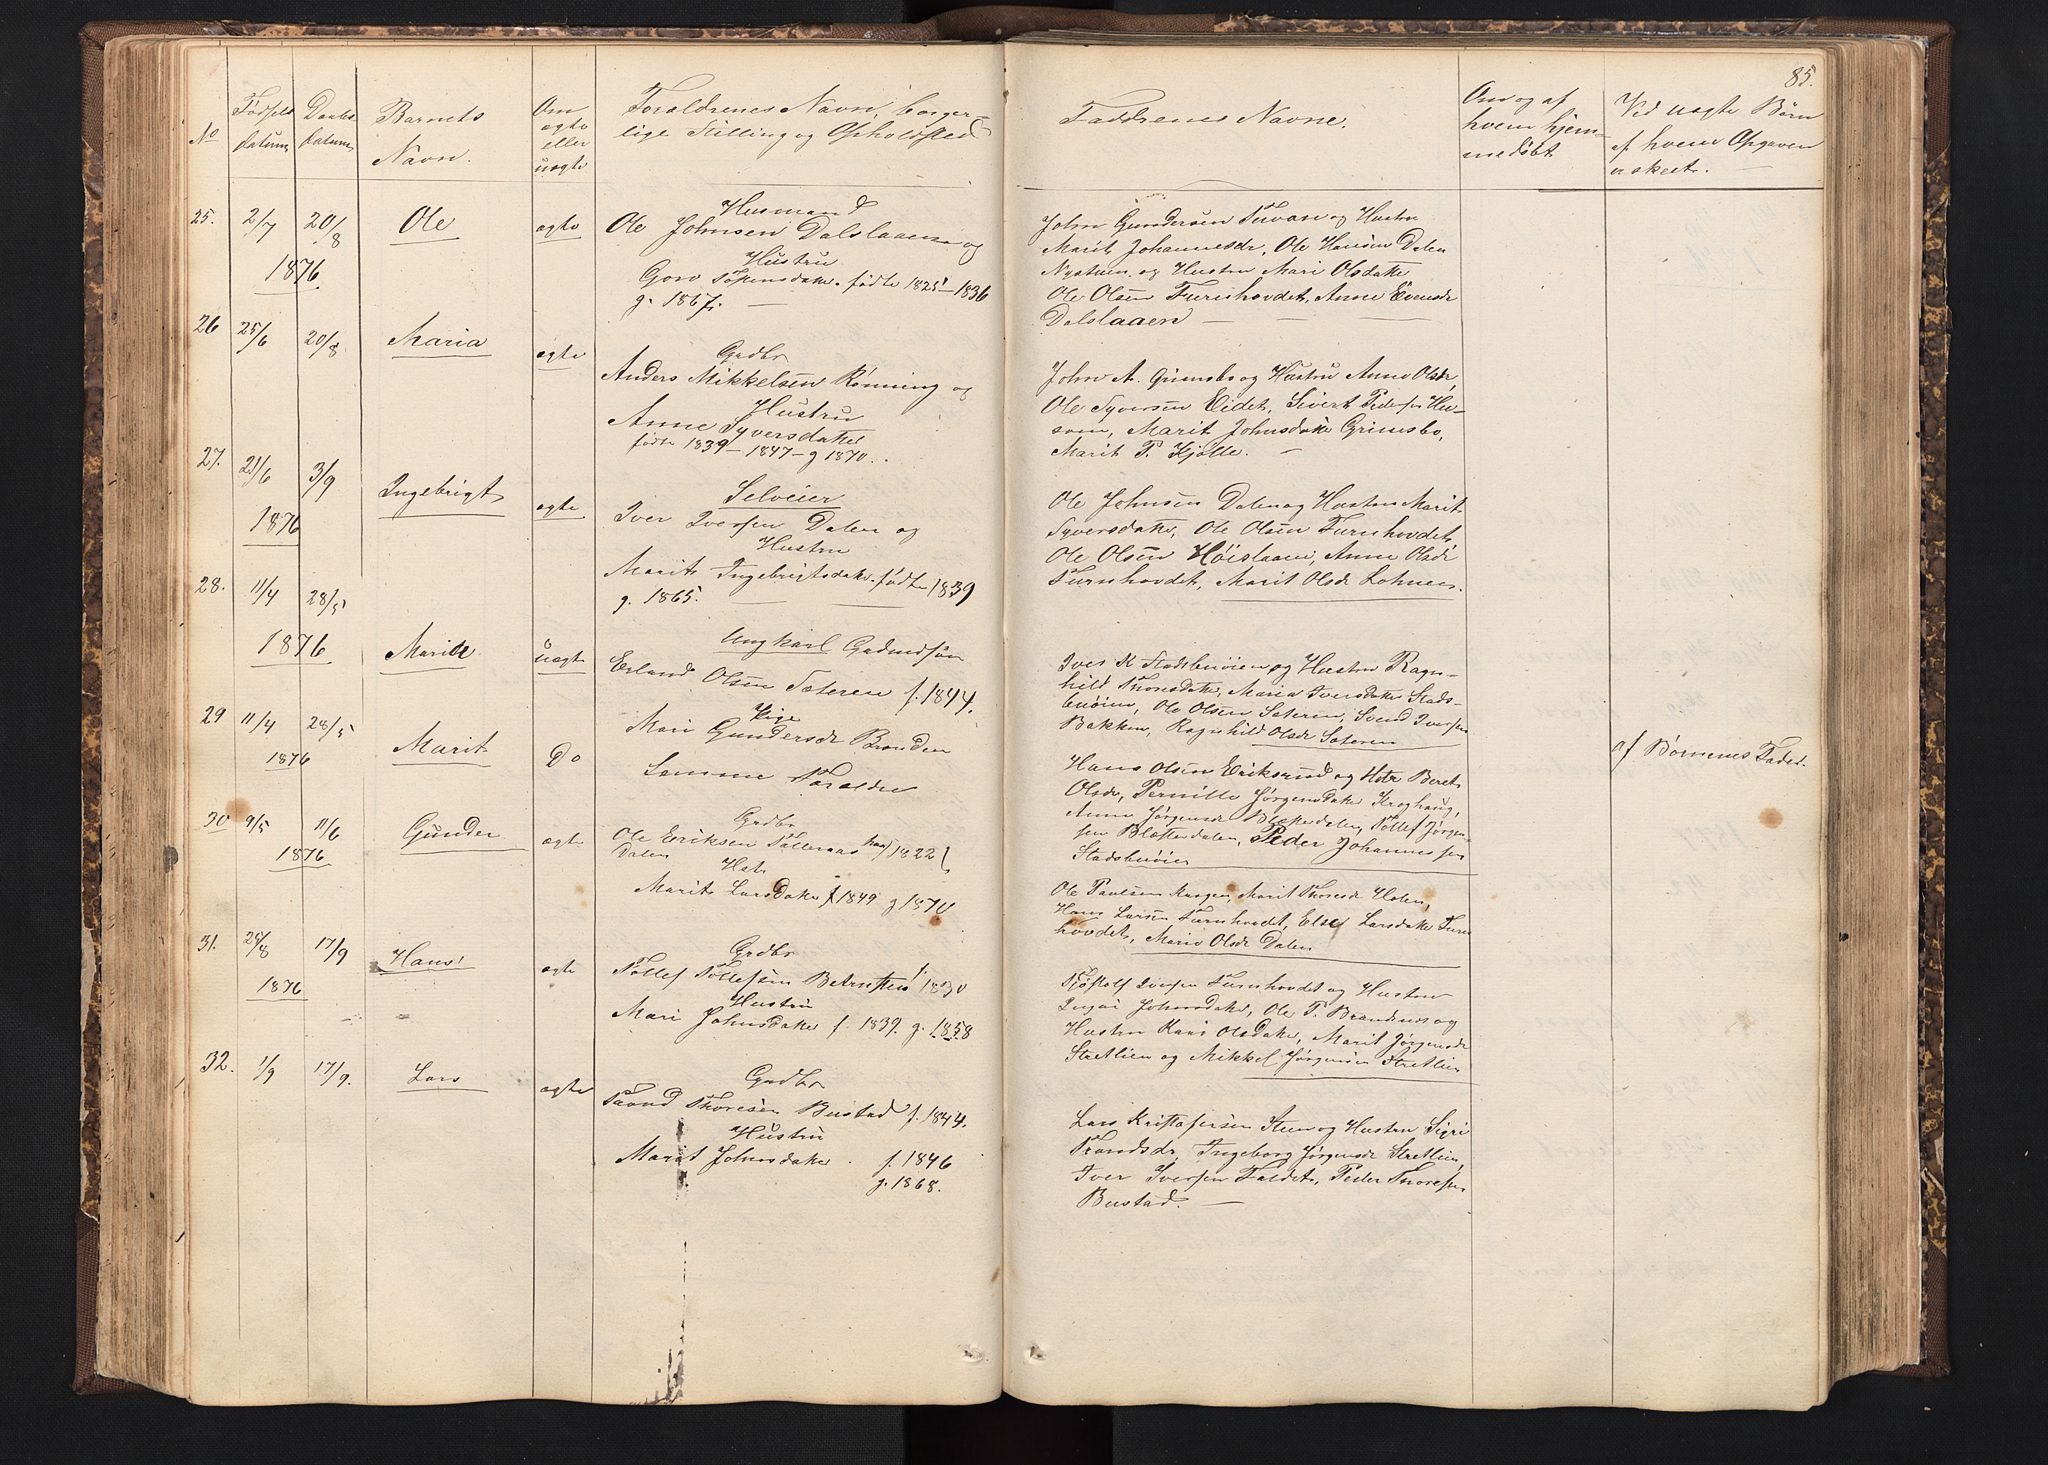 85.
No
Fødsels
datum
Daabs
datum
Barnets
Navn.
Om
ægte
eller
uægte
Forældrenes Navn, borger-
lige Stilling og Opholdsted
Faddrenes Navne.
Om og af
hvem hjem-
medøbt
Ved uægte Børn
af hvem Opgaven
er skeet.
25. 2/7 20/8 Ole ægte
1876
Husmand
Ole Johnsen Dalslaaen og
Hustru
Goro født 1825 – 1836
g. 1867.
John Gundersen og Hustru
Marit Johannesdr, Ole Hansen Dalen
Nystuen og Hustru Mari Olsdatter
Ole Olsen Furuhovdet, Anne
Dalslaaen
26 25/6 20/8 Maria ægte
Grdbr
Anders Mikkelsen Rønning og
Hustru
Anne Syversdatter
født 1839 – 1847 – g 1870.
John A. Grimsbo og Hustru Anne Olsdr,
Ole Syversen Eidet, Sivert Pedersen Hu-
som, Marit Johnsdatter Grimsbo,
Marit P. Kjølle.
27. 21/6 3/9 Ingebrigt ægte
1876
Selveier
Iver Iversen Dalen og
Hustru
Marit Ingebrigtsdatr. født 1839
g. 1865.
Ole Johnsen Dalen og Hustru Marit
Syversdatter, Ole Olsen Furuhovdet,
Ole Olsen Høislaaen, Anne Olsdr
Furuhovdet, Marit Olsdr Lohnes.
28. 11/4 28/5
1876 uægte
Ungkarl Gaardmandssøn
Erland Olsen Sæteren f. 1844.
Pige
Mari Gundersdr Branden
Iver Stadsbuøien og Hustru Ragn-
hild Thoresdatter, Maria Iversdatter Stads-
buøien, Ole Olsen Sæteren, Svend Iversen
Bakken, Ragnhild Olsdr Sæteren
29 11/4 28/5
1876 Marit Do
Samme Forældre
Hans Olsen Eriksrud og Hstr Beret
Olsdr, Pernille Jørgensdatter Kroghaug,
Anne Jørgensdr Blæsterdalen, Tollef Jørgen-
sen Blæsterdalen, Peder Johannessen
Stadsbuøien
af Børnenes Fader.
30 9/5 11/6 Gunder ægte
1876
Grdbr
Ole Eriksen 1822
Dalen
Hst
Marit Larsdatter f 1849 g 1870
Ole Paulsen Marit Thoresdr Holen,
Hans Larsen Furuhovdet, Else Larsdatter Furu
hovdet, Marie Olsdr Dalen
31. 25/8 17/9 Hans ægte
1876
Grdbr
Tollef Tollefsen f. 1830
Hustru
Mari Johnsdatter f. 1839. g. 1858
Iversen Furuhovdet og Hustru
Johnsdatter, Ole T. Brandenes og
Hustru Kari Olsdatter, Marit Jørgensdr
Stretlien og Mikkel Jørgensen Stretlien
32. 1/9 17/9. Lars ægte
Grdbr
Thoresen Bustad f. 1844.
Hustru
Marit Johnsdatter f. 1846
g. 1868.
Lars Kristofersen Steen og Hustru Sigri
Trondsdr, Ingeborg Jørgensdr Stretlien,
Iver Iversen Faldet, Peder Thoresen
Bustad.